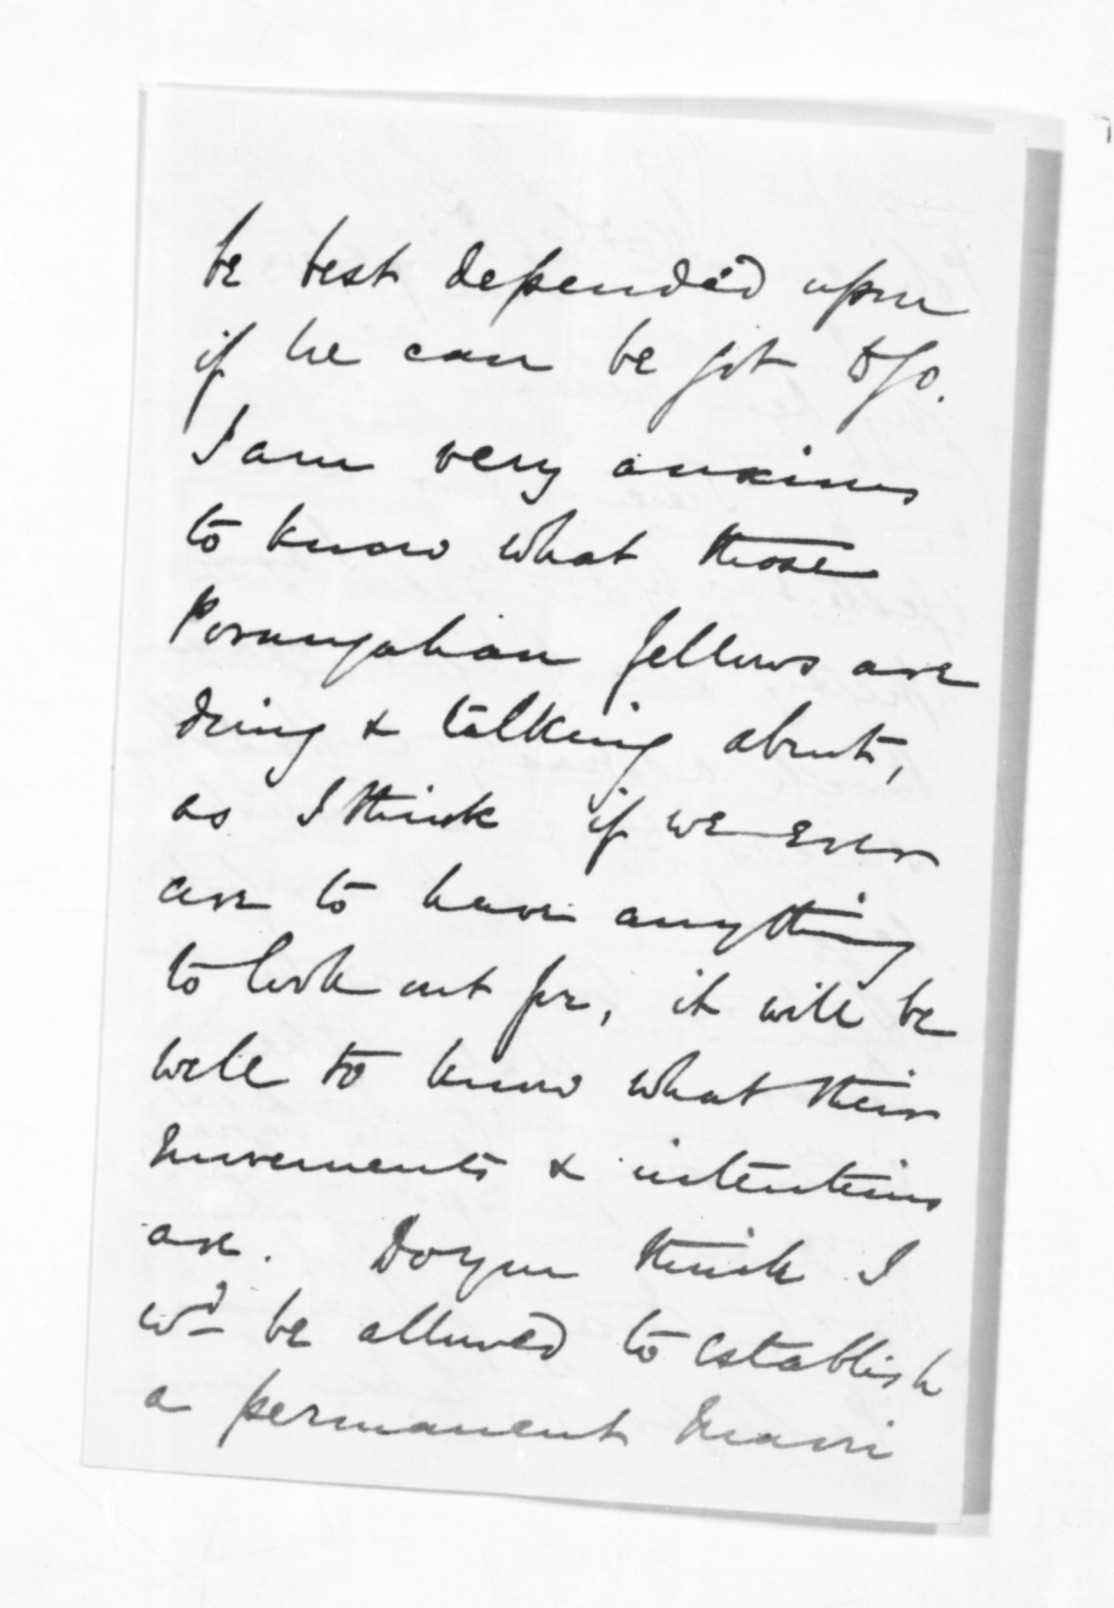 be best depended upon
if he can be got to go.
I am very anxious
to know what those
Porangahau fellows are
doing & talking about,
as I think if we ever
are to have anything
to look out for, it will be
well to know what their
movements & intentions
are. Do you think I
wd be allowed to establish
a permanent Maori